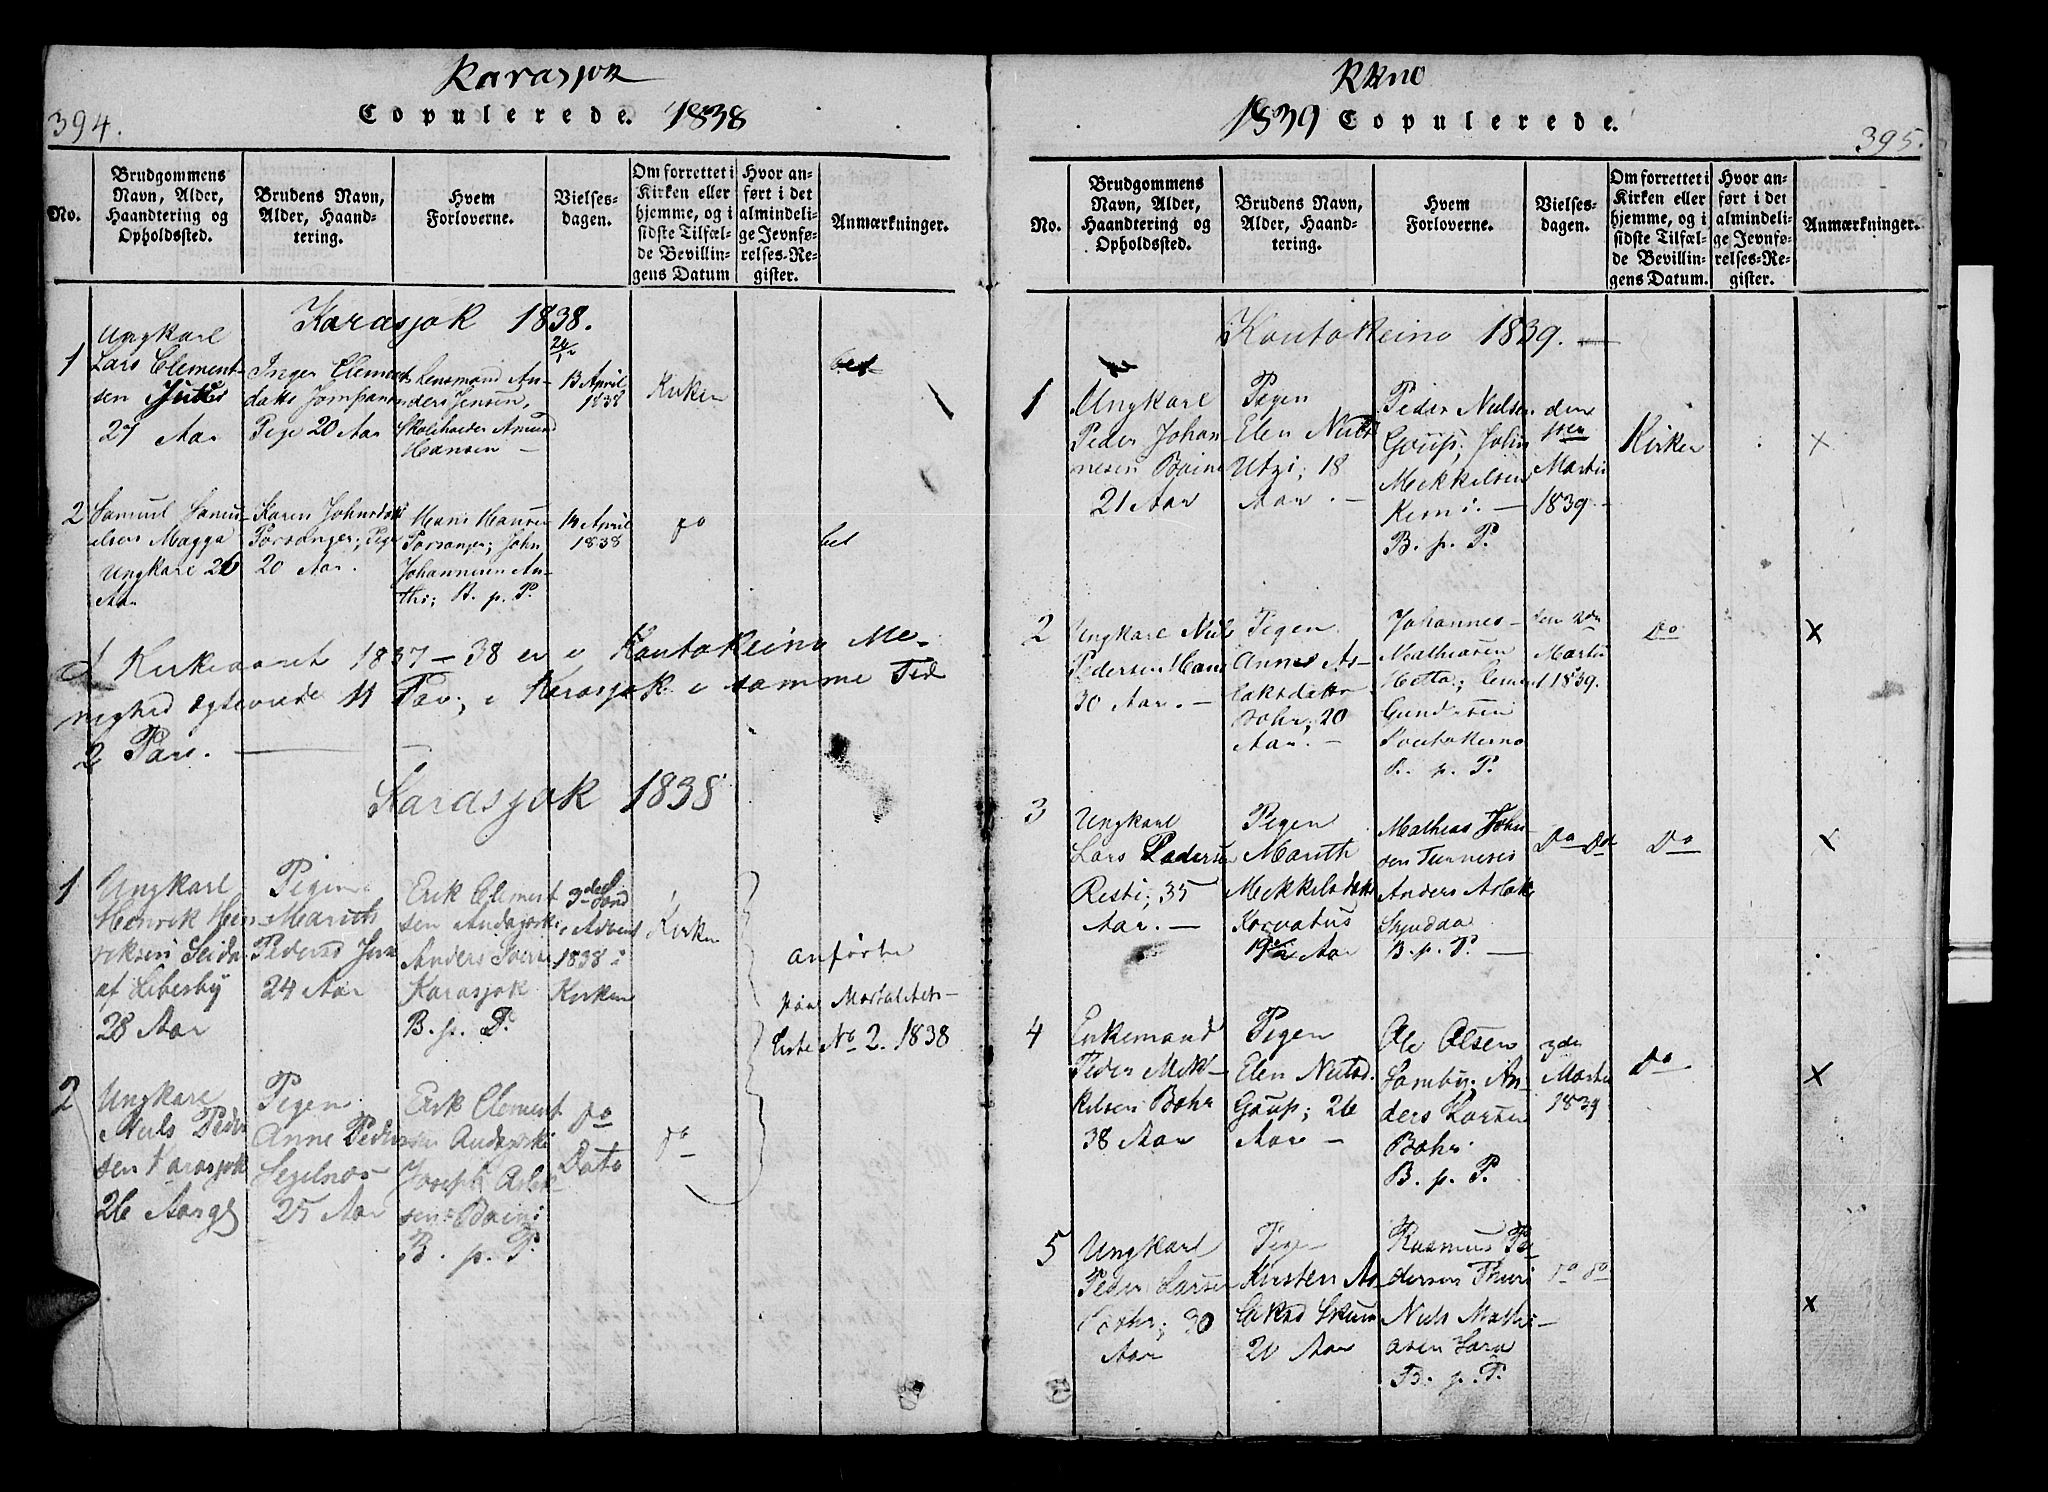 Karasjok
394.
Copulerede. 1838
No.
Brudgommens
Navn, Alder,
Haandtering og
Opholdssted.
Brudens Navn,
Alder, Haand-
tering.
Hvem
Forloverne.
Vielses-
dagen.
Om forrettet i
Kirken eller
hjemme, og i
sidste Tilfæl-
de Bevillin-
gens Datum
Hvor an-
ført i det
almindeli-
ge Jevnfø-
relses-Re-
gister.
Anmærkninger.
Karasjok 1838.
1
Ungkarl
Lars Clement-
sen
27 Aar
Inger Clements
datter
Pige 20 Aar
Lensmand An-
ders Jensen,
Skoleholder Amund
Hansen —
13 April
1838
Kirken
bet
2
Samuel Samu-
elsen Magga
Ungkarl 26
Aar
Karen Johnsdatt
Porsanger; Pige
20 Aar.
Hans Hansen
Porsanger; John
Johannesen An-
thi; B. p. P.
14 April
1838
do
bet
I Kirkeaaret 1837-38 er i Koutokeino Me-
nighed ægteviede 11 Par; i Karasjok i samme Tid
2 Par. —
Karasjok 1838
1
Ungkarl
Henrik Hen-
riksen Seida
af Lebesby
28 Aar
Pigen
Marith
Pedersd
24 Aar
Erik Clement
sen Andagorki
Anders
Karasjok
B. p. P.
3de Sønd
i Advent
1838 i
Kirken
Kirken
anførte
paa Mortalitets-
Liste No 2. 1838
2
Ungkarl
Niels Peder
sen Karasjok
26 Aar gl
Pigen
Anne Peders
Segelnæs
25 Aar
Erik Clement
sen Andagorki
Joseph Aslak-
sen Baini
B. p. P.
do
Dato
do
KKno
1839 Copulerede.
395.
No.
Brudgommens
Navn, Alder,
Haandtering og
Opholdssted.
Brudens Navn,
Alder, Haand-
tering.
Hvem
Forloverne.
Vielses-
dagen.
Om forrettet i
Kirken eller
hjemme, og i
sidste Tilfæl-
de Bevillin-
gens Datum.
Hvor an-
ført i det
almindeli-
ge Jevnfø-
relses-Re-
gister.
Anmærkninger.
Koutokeino 1839. —
1
Ungkarl
Peder Johan-
nesen Baine
21 Aar
Pigen
Elen Nielsd
Utzi; 18
Aar. —
Peder Nielsen
Gaup; John
Mekkelsen
Kemi. —
B. p. P.
den
Martii
1839. -
Kirken
x
2
Ungkarl Niels
Pedersen Hæt
30 Aar. —
Pigen
Anne As-
laksdatter
Bohr; 20
Aar. —
Johannes
Mathiasen
Hetta; Clement
Gundersen
Koutokeino
B. p. P.
den 2den
Martii
1839.
Do
x
3
Ungkarl
Lars Pedersen
Resti; 35
Aar. —
Pigen
Marith
Mekkelsdatter
Korvatus
19½ Aar
Mathias John
sen Turinesis
Anders Aslak
B. p. P. —
Do Do
Do
x
4
Enkemand
Peder Mek-
kelsen Bohr
38 Aar
Pigen
Elen Nielsd.
Gaup; 26
Aar —
Ole Olsen
Somby; An
ders Larsen
Bahr
B. p. P.
3de
Martii
1839
Do
x
5
Ungkarl
Peder Larsen
Bohr; 30
Aar
Pigen
Kirsten As-
laksd Skum
20 Aar
Rasmus Pe
dersen Thuri
Niels Mathi-
asen Sara
B. p. P.
do do
x